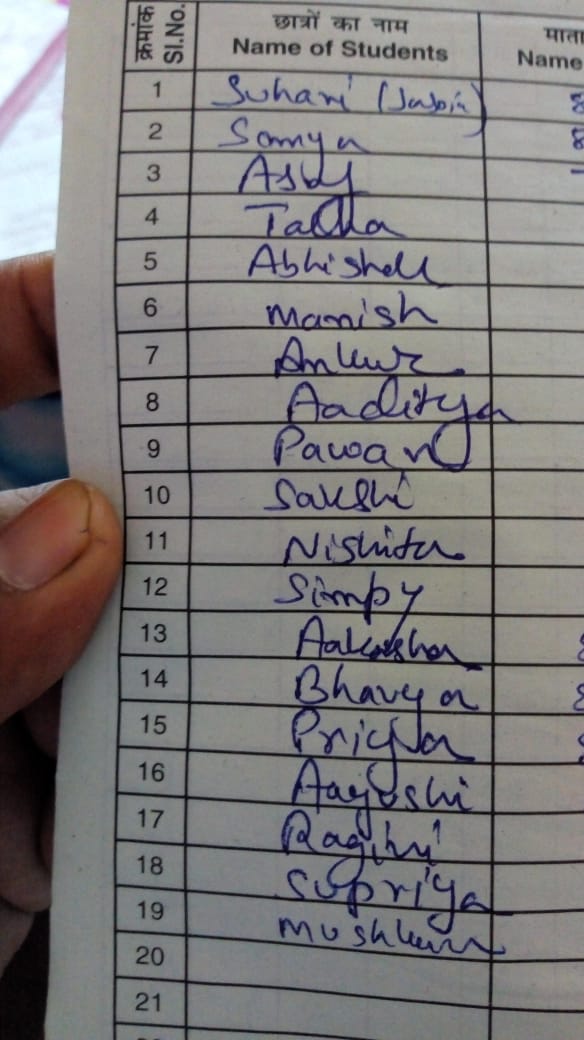 क्रमांक Sl.No. छात्रों का नाम Name of Students माता Name
1 Suhani (Jasbin) 8
2 Somya 8
3 Asby
4 Talha
5 Abhishek
6 Manish
7 Ankur
8 Aaditya
9 Pawan
10 Sakshi
11 Nishita
12 Simpy
13 Aakansha 8
14 Bhavya 8
15 Priya 8
16 Aayushi
17 Ragini
18 Supriya
19 Mushkan
20
21